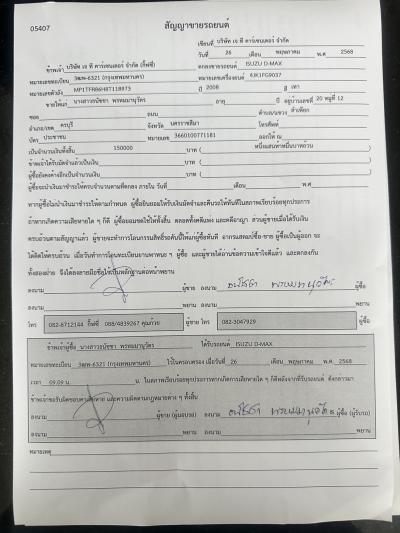 05407
สัญญาขายรถยนต์
เขียนที่ บริษัท เจ ที คาร์เซนเตอร์ จำกัด
วันที่ 26 เดือน พฤษภาคม พ.ศ 2568
ข้าพเจ้า บริษัท เจ ที คาร์เซนเตอร์ จำกัด (กิ๊ฟซี่) ตกลงขายรถยนต์ ISUZU D-MAX
หมายเลขทะเบียน 3ฒฬ-6321 (กรุงเทพมหานคร) หมายเลขเครื่องยนต์ 4JK1FG9037
หมายเลขตัวถัง MP1TFR86H8T118973 ปี 2008 สี เทา
ขายให้แก่ นางสาวธนัชชา พรหมมานุวัตร อายุ ปี อยู่บ้านเลขที่ 20 หมู่ที่ 12
ซอย ถนน ตำบล/แขวง ลำเพียก
อำเภอ/เขต ครบุรี จังหวัด นครราชสีมา โทรศัพท์
บัตร ประชาชน หมายเลข 3660100771181 ออกให้ ณ
เป็นจำนวนเงินทั้งสิ้น 150000 บาท ( หนึ่งแสนห้าหมื่นบาทถ้วน
ข้าพเจ้าได้รับมัดจำแล้วเป็นเงิน บาท (
ผู้ซื้อยังคงค้างอีกเป็นจำนวนเงิน บาท (
ผู้ซื้อจะนำเงินมาชำระให้ครบจำนวนตามที่ตกลง ภายใน วันที่ เดือน พ.ศ
หากผู้ซื้อไม่นำเงินมาชำระให้ตามกำหนด ผู้ซื้อยินยอมให้ริบเงินมัดจำและคืนรถให้ทันทีในสภาพเรียบร้อยทุกประการ
ถ้าหากเกิดความเสียหายใด ๆ ก็ดี ผู้ซื้อยอมชดใช้ให้ทั้งสิ้น ตลอดทั้งคดีแพ่ง และคดีอาญา ส่วนผู้ขายเมื่อได้รับเงิน
ครบถ้วนตามสัญญาแล้ว ผู้ขายจะทำการโอนกรรมสิทธิ์รถคันนี้ให้แก่ผู้ซื้อทันที
ทั้งสองฝ่าย จึงได้ลงลายมือชื่อไว้เป็นหลักฐานต่อหน้าพยาน
ลงนาม ผู้ขาย ลงนาม ธนัชชา พรหมมานุวัตร ผู้ซื้อ
ลงนาม พยาน ลงนาม พยาน
โทร 082-8712144 กิ๊ฟซี่ 088/4839267 คุณก้วย ผู้ขาย โทร 082-3047929 ผู้ซื้อ
ข้าพเจ้าผู้ซื้อ นางสาวธนัชชา พรหมมานุวัตร ได้รับรถยนต์ ISUZU D-MAX
หมายเลขทะเบียน 3ฒฬ-6321 (กรุงเทพมหานคร) ไว้ในครอบครอง เมื่อวันที่ 26 เดือน พฤษภาคม พ.ศ. 2568
เวลา 09.09 น. น. ในสภาพเรียบร้อยทุกประการหากเกิดการเสียหายใด ๆ ก็ดีหลังจากที่รับรถยนต์ ดังกล่าวมา
ข้าพเจ้าขอรับผิดชอบตามที่ และความผิดตามกฎหมายต่าง ๆ ทั้งสิ้น
ลงนาม ผู้ขาย (ผู้มอบรถ) ลงนาม ธนัชชา พรหมมานุวัตร ผู้ซื้อ (ผู้รับรถ)
ลงนาม พยาน ลงนาม พยาน
หมายเหตุ